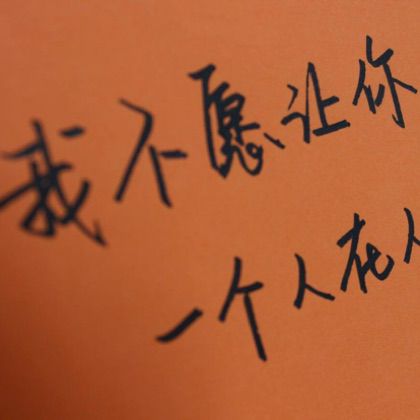 我不愿让你
一个人在人